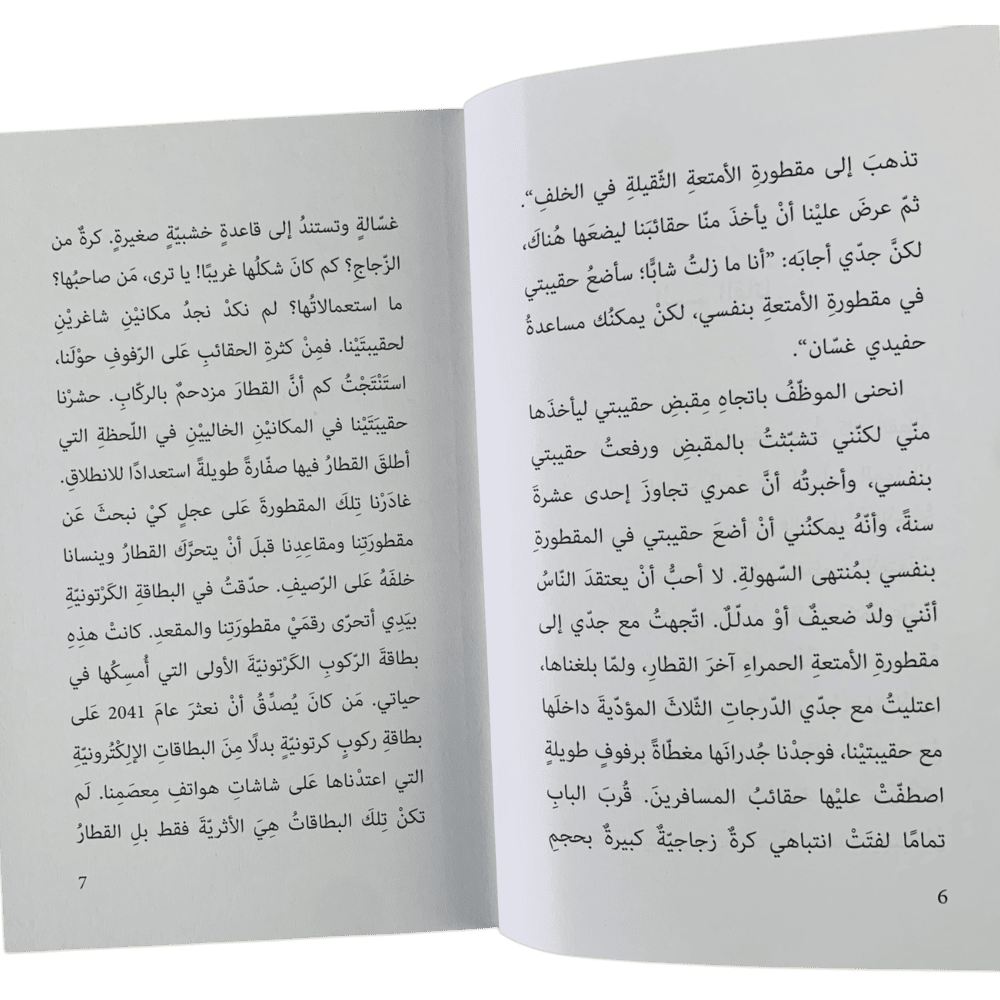 تذهبَ إلى مقطورةِ الأمتعةِ الثّقيلةِ في الخلفِ“.
ثمّ عرضَ عليْنا أنْ يأخذَ منّا حقائبَنا ليضعَها هُناكَ،
لكنَّ جدّي أجابَه: ”أنا ما زلتُ شابًّا؛ سأضعُ حقيبتي
في مقطورةِ الأمتعةِ بنفسي، لكنْ يمكنُك مساعدةُ
حفيدي غسّان“.
انحنى الموظّفُ باتجاهِ مِقبضِ حقيبتي ليأخذَها
منّي لكنّني تشبّثتُ بالمقبضِ ورفعتُ حقيبتي
بنفسي، وأخبرتُه أنَّ عمري تجاوزَ إحدى عشرةَ
سنةً، وأنّهُ يمكنُني أنْ أضعَ حقيبتي في المقطورةِ
بنفسي بمُنتهى السّهولةِ. لا أحبُّ أنْ يعتقدَ النّاسُ
أنّني ولدٌ ضعيفٌ أوْ مدلّلٌ. اتّجهتُ مع جدّي إلى
مقطورةِ الأمتعةِ الحمراءِ آخرَ القطارِ، ولمّا بلغناها،
اعتليتُ مع جدّي الدّرجاتِ الثّلاثَ المؤدّيةَ داخلَها
مع حقيبتيْنا، فوجدْنا جُدرانَها مغطّاةً برفوفٍ طويلةٍ
اصطفّتْ عليْها حقائبُ المسافرينَ. قُربَ البابِ
تمامًا لفتَتْ انتباهي كرةٌ زجاجيّةٌ كبيرةٌ بحجمِ
6
غسّالةٍ وتستندُ إلى قاعدةٍ خشبيّةٍ صغيرةٍ. كرةٌ من
الزّجاجِ؟ كم كانَ شكلُها غريبًا! يا ترى، مَن صاحبُها؟
ما استعمالاتُها؟ لم نكدْ نجدُ مكانيْنِ شاغريْنِ
لحقيبتَيْنا. فمِنْ كثرةِ الحقائبِ عَلى الرّفوفِ حوْلَنا،
استَنْتَجْتُ كم أنَّ القطارَ مزدحمٌ بالركّابِ. حشرْنا
حقيبَتَيْنا في المكانيْنِ الخالييْنِ في اللّحظةِ التي
أطلقَ القطارُ فيها صفّارةً طويلةً استعدادًا للانطلاقِ.
غادَرْنا تِلكَ المقطورةَ عَلى عجلٍ كيْ نبحثَ عَن
مقطورَتِنا ومقاعدِنا قبلَ أنْ يتحرَّكَ القطارُ وينسانا
خلفَهُ عَلى الرّصيفِ. حدّقتُ في البطاقةِ الكَرْتونيّةِ
بيَدِي أتحرّى رقمَيْ مقطورَتِنا والمقعدِ. كانتْ هذِهِ
بطاقةَ الرّكوبِ الكَرْتونيّةَ الأولى التي أُمسِكُها في
حياتي. مَن كانَ يُصدِّقُ أنْ نعثرَ عامَ 2041 عَلى
بطاقةِ ركوبٍ كرتونيّةٍ بدلًا مِنَ البطاقاتِ الإلكْتْرونيّةِ
التي اعتدْناها عَلى شاشاتِ هواتفِ مِعصَمِنا. لَم
تكنْ تِلكَ البطاقاتُ هِيَ الأثريّةَ فقط بلِ القطارُ
7